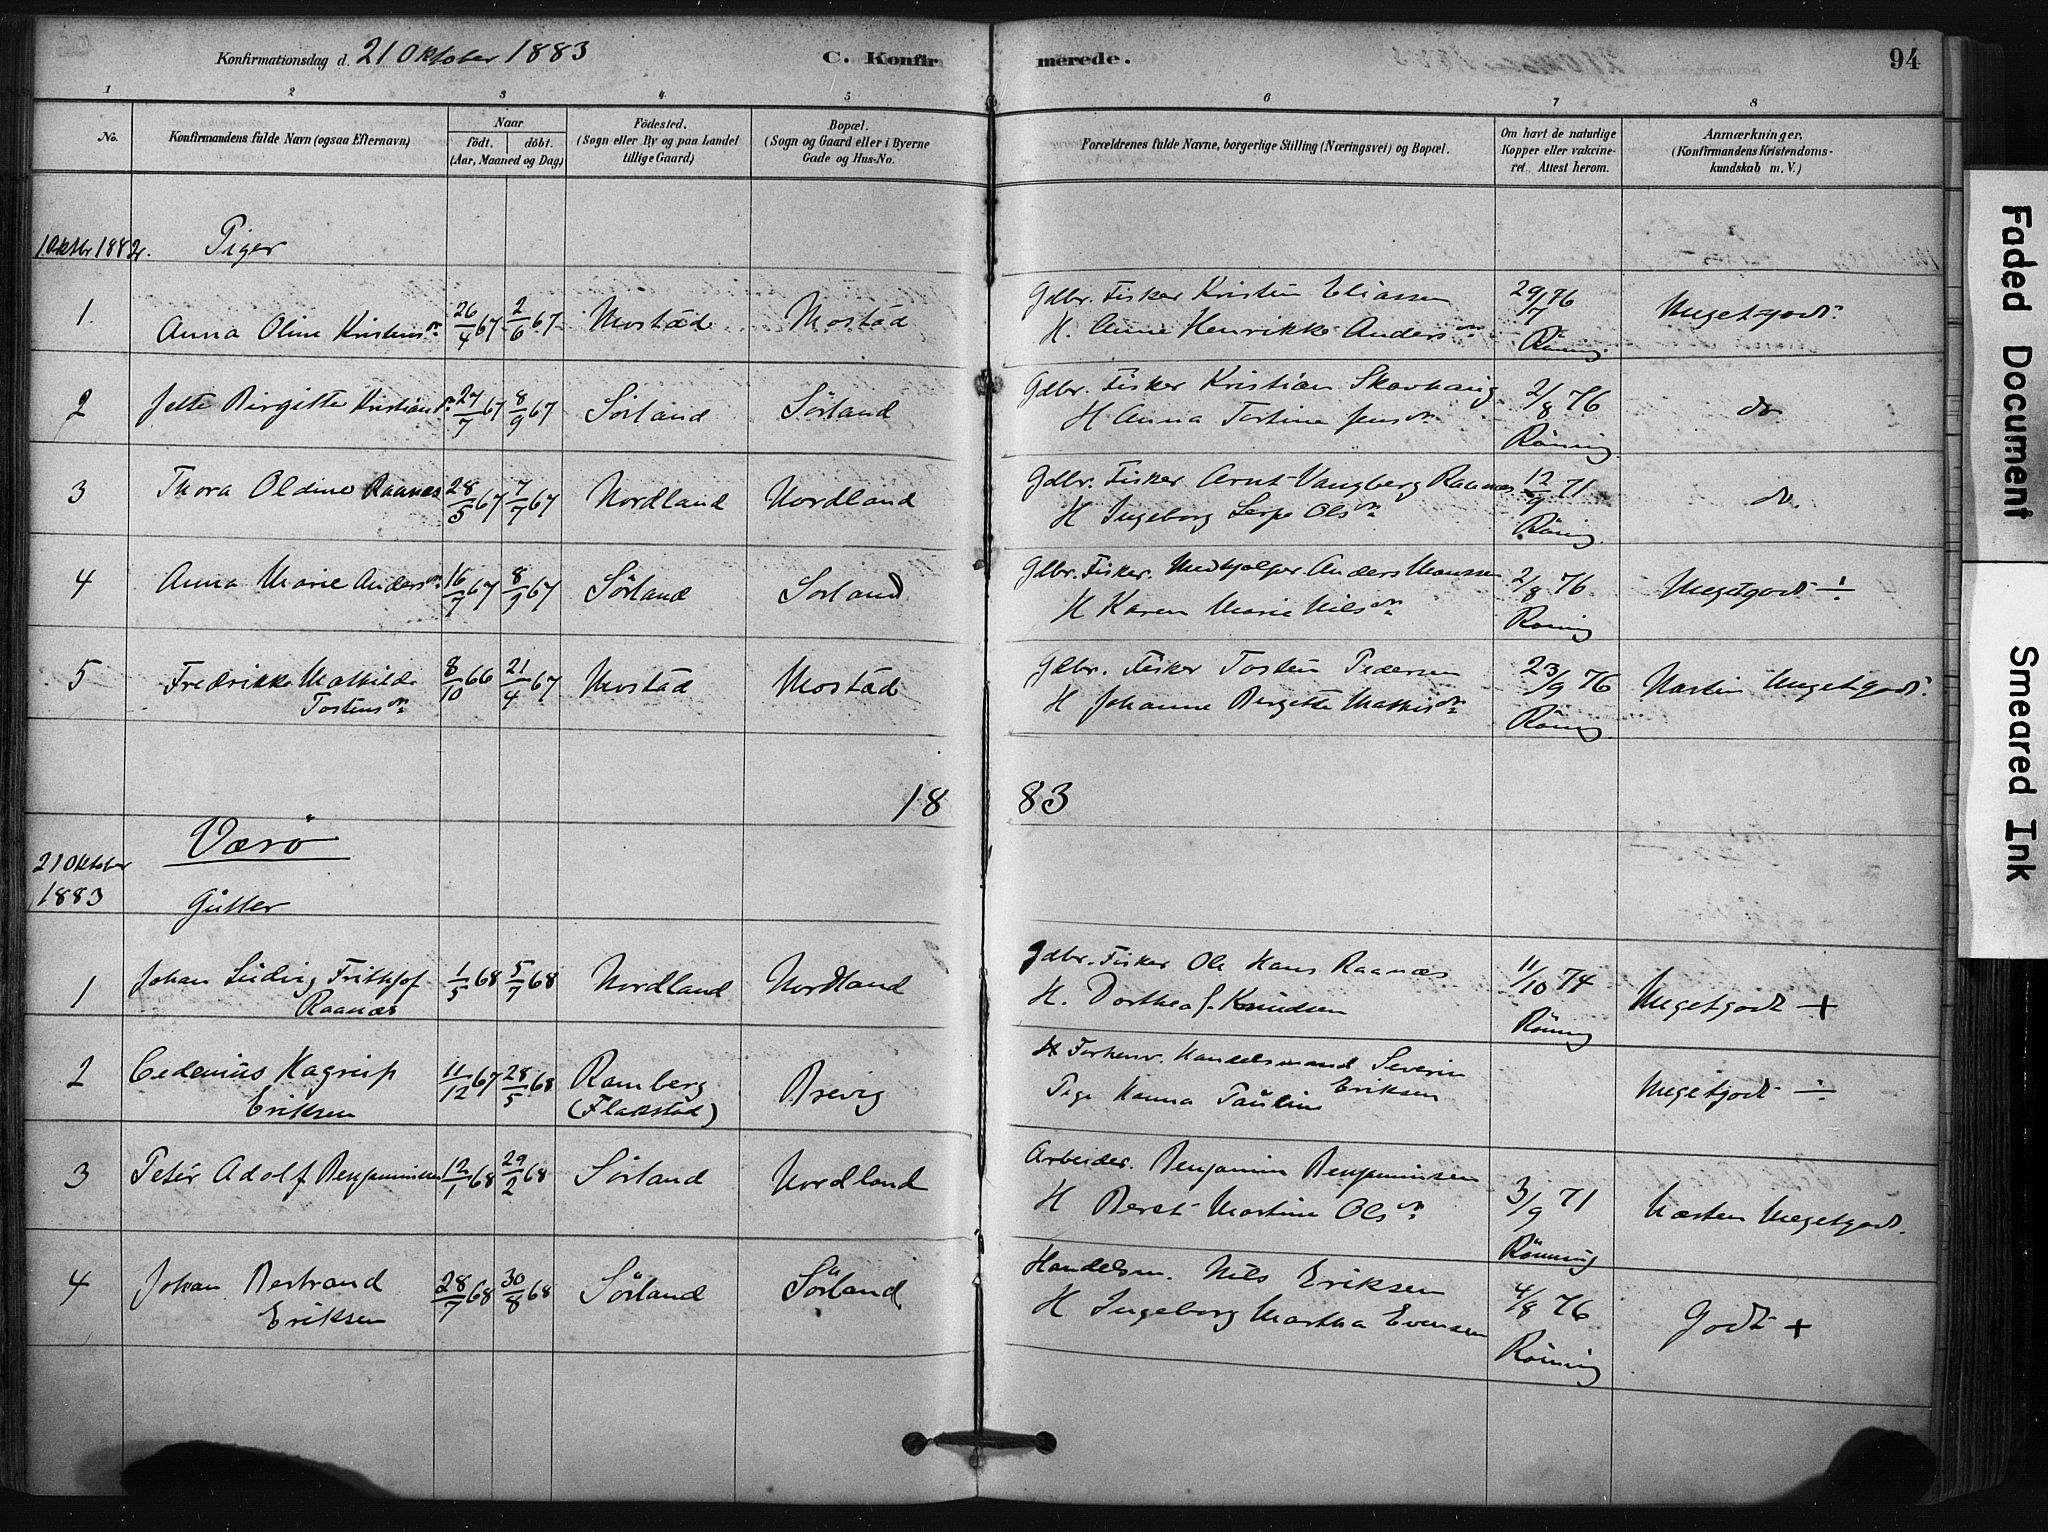 Konfirmationsdag d. 21 Oktober 1883
C. Konfirmerede.
94
1 2 3 4 5 6 7 8
No.
Konfirmandens fulde Navn (ogsaa Efternavn)
Naar
födt. döbt.
(Aar, Maaned og Dag)
Födested.
(Sogn eller By og paa Landet
tillige Gaard)
Bopæl.
(Sogn og Gaard eller i Byerne
Gade og Hus-No.
Forældrenes fulde Navne, borgerlige Stilling (Næringsvei) og Bopæl.
Om havt de naturlige
Kopper eller vakcine-
ret. Attest herom.
Anmærkninger.
(Konfirmandens Kristendoms-
kundskab m. V.)
1 Oktbr 1882. Piger
1. Anna Oline Kristens dr. 26/4 67 2/6 67 Mostad Mostad
Gdbr. Fisker Kristen Eliassen
H. Anne Henrikke Anders dr.
29/7 76
Röning.
Megetgodt
2 Jette Birgitte Kristians dr. 27/7 67 8/9 67 Sörland Sörland
Gdbr. Fisker Kristian Skavhaug
H Anna Tostine Jens dr.
2/8 76
Röning.
do
3 Thora Oldine Raanes 28/5 67 7/7 67 Nordland Nordland
Gdbr. Fisker Arnt Vangberg Raanes
H Ingeborg Serpe Ols dr.
12/9 71
Röning.
do.
4 Anna Marie Anders dr. 16/7 67 8/9 67 Sörland Sorland
Gdbr. Fisker. Medhjelper Anders Monssen
H Karen Marie Nils dr.
2/8 76
Röning
Megetgodt ÷
5 Fredrikke Mathilde
Tostens dr. 8/10 66 21/4 67 Mostad Mostad
Gdbr. Fisker Tosten Pedersen
H Johanne Bergitte Mathis dr.
23/9 76
Röning
Næsten Megetgodt.
1883
Værö
21 Oktober
1883
Gutter
1 Johan Ludvig Frithjof
Raanæs 1/5 68 5/7 68 Nordland Nordland
Gdbr. Fisker Ole Hans Raanæs
H. Dorthea J. Knudsen
11/10 74
Röning
Megetgodt +
2 Cedenius Hagrup
Eriksen 11/12 67 28/5 68 Ramberg
(Flakstad) Brevig
Forhenv. Handelsmand Severin
Eriksen
Pige Hanna Pauline
Megetgodt ÷
3 Peter Adolf Benjaminsen 12/1 68 29/2 68 Sörland Nordland
Arbeider. Benjamin Benjaminsen
H Beret Martine Ols dr.
3/9 71
Rönning
Næsten Megetgodt.
4 Johan Bertrand
Eriksen 28/7 68 30/8 68 Sörland Sörland
Handelsm. Nils Eriksen
H Ingeborg Martha Evensen
4/8 76
Röning
Godt +
Faded Document
Smeared Ink